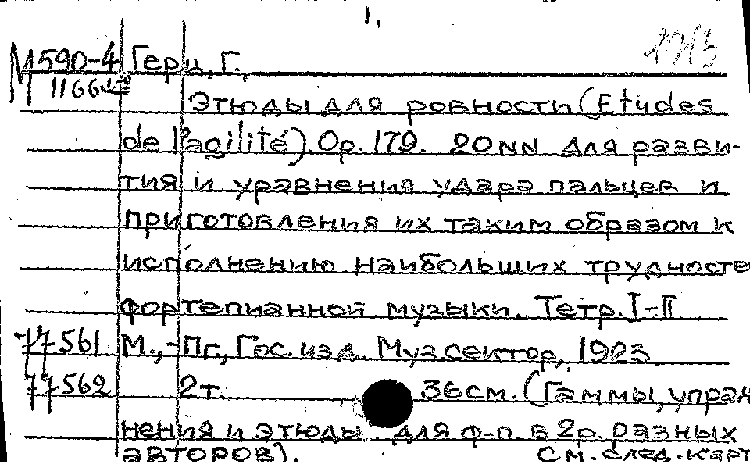 1.
М590-4 Герц, Г.,
11664
Этюды для ровности (Etudes
de l'agilité). Op. 179. 20 NN для разви-
тия и уравнения удара пальцев и
приготовления их таким образом к
исполнению наибольших трудносте
фортепианной музыки. Тетр. I-II
77561 М.,-Пг., Гос. изд. Муз. сектор, 1923
77562 2 т. 36 см. (Гаммы, упраж
нения и этюды для ф-п. в 2 р. разных
авторов). См. след. карт